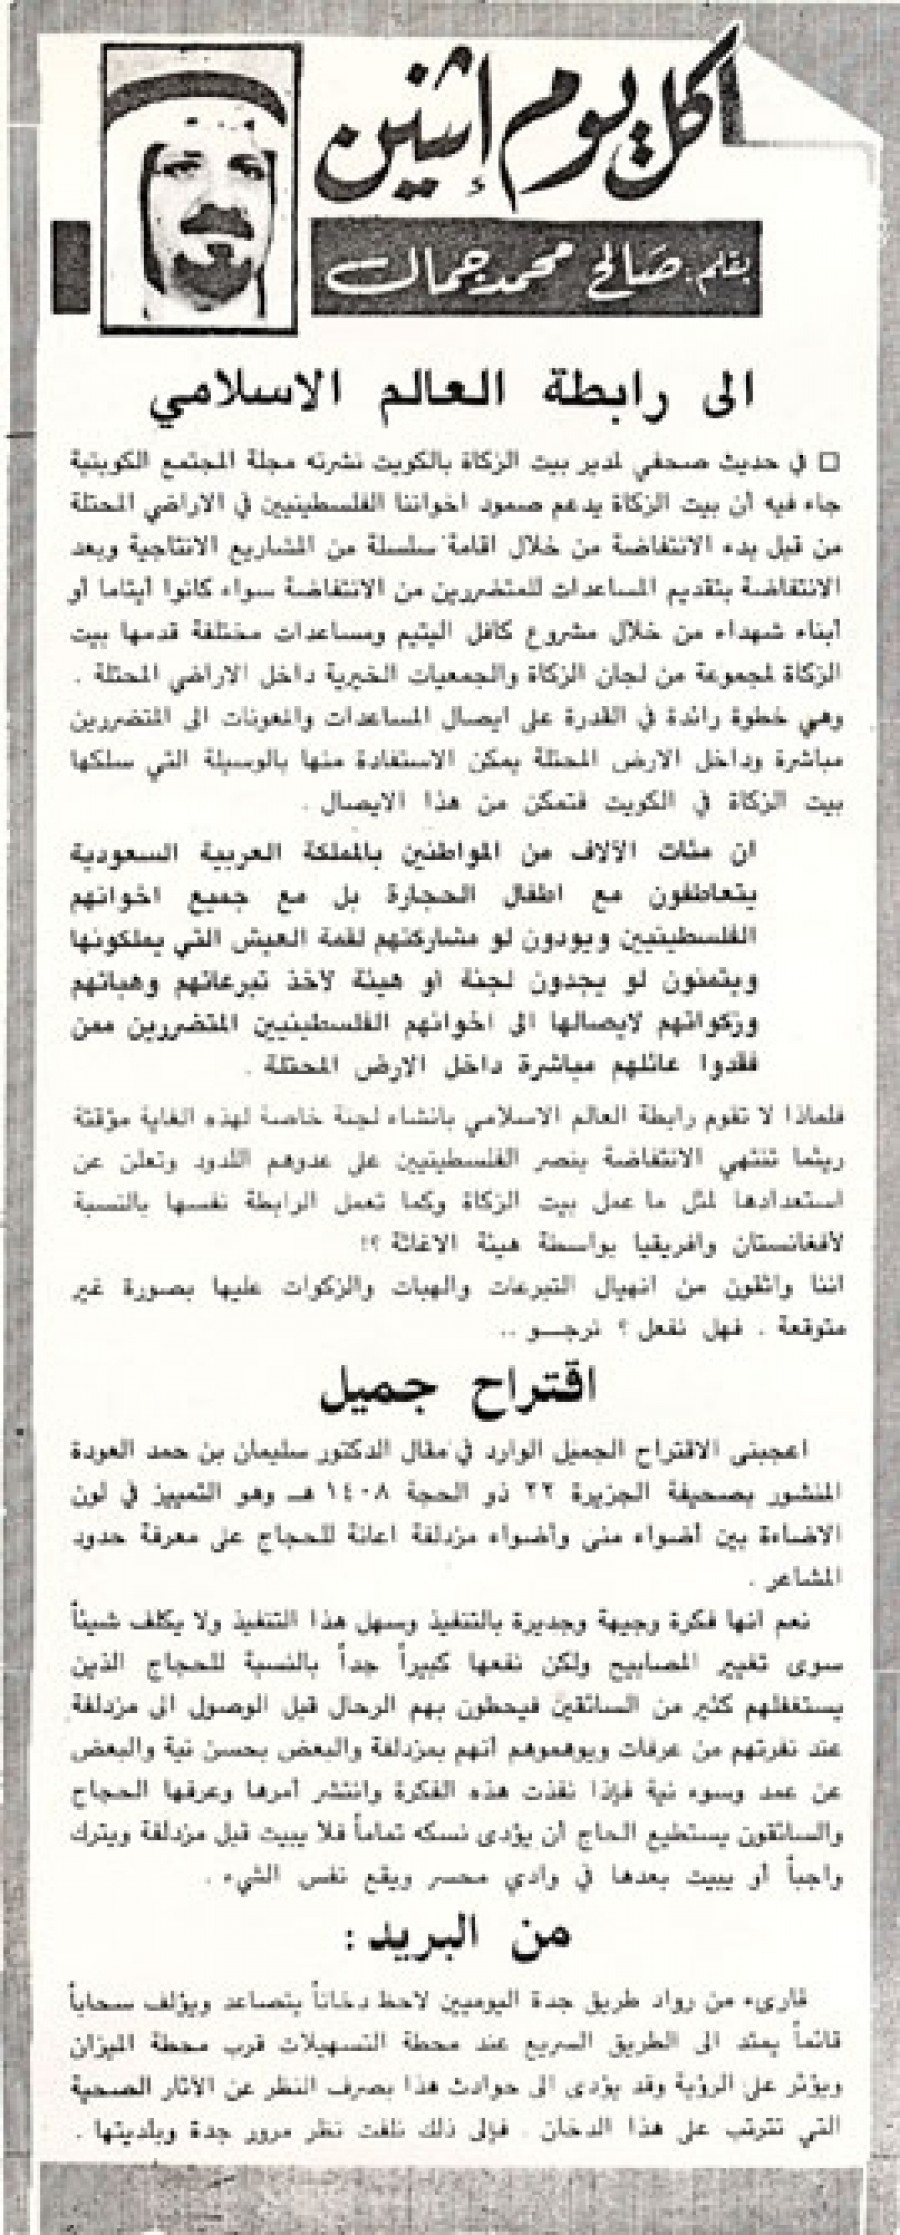 كل يوم إثنين
بقلم: صالح محمد جمال
الى رابطة العالم الاسلامي
□ في حديث صحفي لمدير بيت الزكاة بالكويت نشرته مجلة المجتمع الكويتية
جاء فيه أن بيت الزكاة يدعم صمود اخواننا الفلسطينيين في الاراضي المحتلة
من قبل بدء الانتفاضة من خلال اقامة سلسلة من المشاريع الانتاجية وبعد
الانتفاضة بتقديم المساعدات للمتضررين من الانتفاضة سواء كانوا أيتاما أو
أبناء شهداء من خلال مشروع كافل اليتيم ومساعدات مختلفة قدمها بيت
الزكاة لمجموعة من لجان الزكاة والجمعيات الخيرية داخل الاراضي المحتلة .
وهي خطوة رائدة في القدرة على ايصال المساعدات والمعونات الى المتضررين
مباشرة وداخل الارض المحتلة يمكن الاستفادة منها بالوسيلة التي سلكها
بيت الزكاة في الكويت فتمكن من هذا الايصال .
ان مئات الآلاف من المواطنين بالمملكة العربية السعودية
يتعاطفون مع اطفال الحجارة بل مع جميع اخوانهم
الفلسطينيين ويودون لو مشاركتهم لقمة العيش التي يملكونها
ويتمنون لو يجدون لجنة او هيئة لاخذ تبرعاتهم وهباتهم
وزكواتهم لايصالها الى اخوانهم الفلسطينيين المتضررين ممن
فقدوا عائلهم مباشرة داخل الارض المحتلة .
فلماذا لا تقوم رابطة العالم الاسلامي بانشاء لجنة خاصة لهذه الغاية مؤقتة
ريثما تنتهي الانتفاضة بنصر الفلسطينيين على عدوهم اللدود وتعلن عن
استعدادها لمثل ما عمل بيت الزكاة وكما تعمل الرابطة نفسها بالنسبة
لأفغانستان وافريقيا بواسطة هيئة الاغاثة ؟!
اننا واثقون من انهيال التبرعات والهبات والزكوات عليها بصورة غير
متوقعة . فهل نفعل ؟ نرجـــو ..
اقتراح جميل
اعجبنى الاقتراح الجميل الوارد في مقال الدكتور سليمان بن حمد العودة
المنشور بصحيفة الجزيرة ٢٢ ذو الحجة ١٤٠٨ هـ وهو التمييز في لون
الاضاءة بين أضواء منى وأضواء مزدلفة اعانة للحجاج على معرفة حدود
المشاعر .
نعم انها فكرة وجيهة وجديرة بالتنفيذ وسهل هذا التنفيذ ولا يكلف شيئاً
سوى تغيير المصابيح ولكن نفعها كبيراً جداً بالنسبة للحجاج الذين
يستغفلهم كثير من السائقين فيحطون بهم الرحال قبل الوصول الى مزدلفة
عند نفرتهم من عرفات ويوهموهم أنهم بمزدلفة والبعض بحسن نية والبعض
عن عمد وسوء نية فإذا نفذت هذه الفكرة وانتشر أمرها وعرفها الحجاج
والسائقون يستطيع الحاج أن يؤدى نسكه تماماً فلا يبيت قبل مزدلفة ويترك
واجباً أو يبيت بعدها في وادي محسر ويقع نفس الشيء .
من البريد :
قارىء من رواد طريق جدة اليوميين لاحظ دخاناً يتصاعد ويؤلف سحاباً
قائماً يمتد الى الطريق السريع عند محطة التسهيلات قرب محطة الميزان
ويؤثر على الرؤية وقد يؤدى الى حوادث هذا بصرف النظر عن الاثار الصحية
التي تترتب على هذا الدخان . فإلى ذلك نلفت نظر مرور جدة وبلديتها .